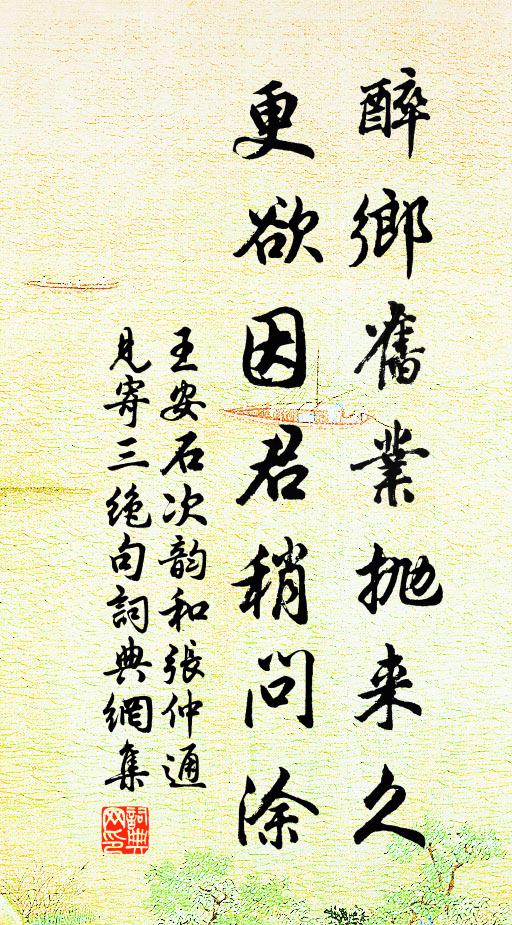 醉鄉舊業抛来久
更欲因君稍問涂
王安石次韵和張仲通
見寄三绝句詞典網集
詞典网印